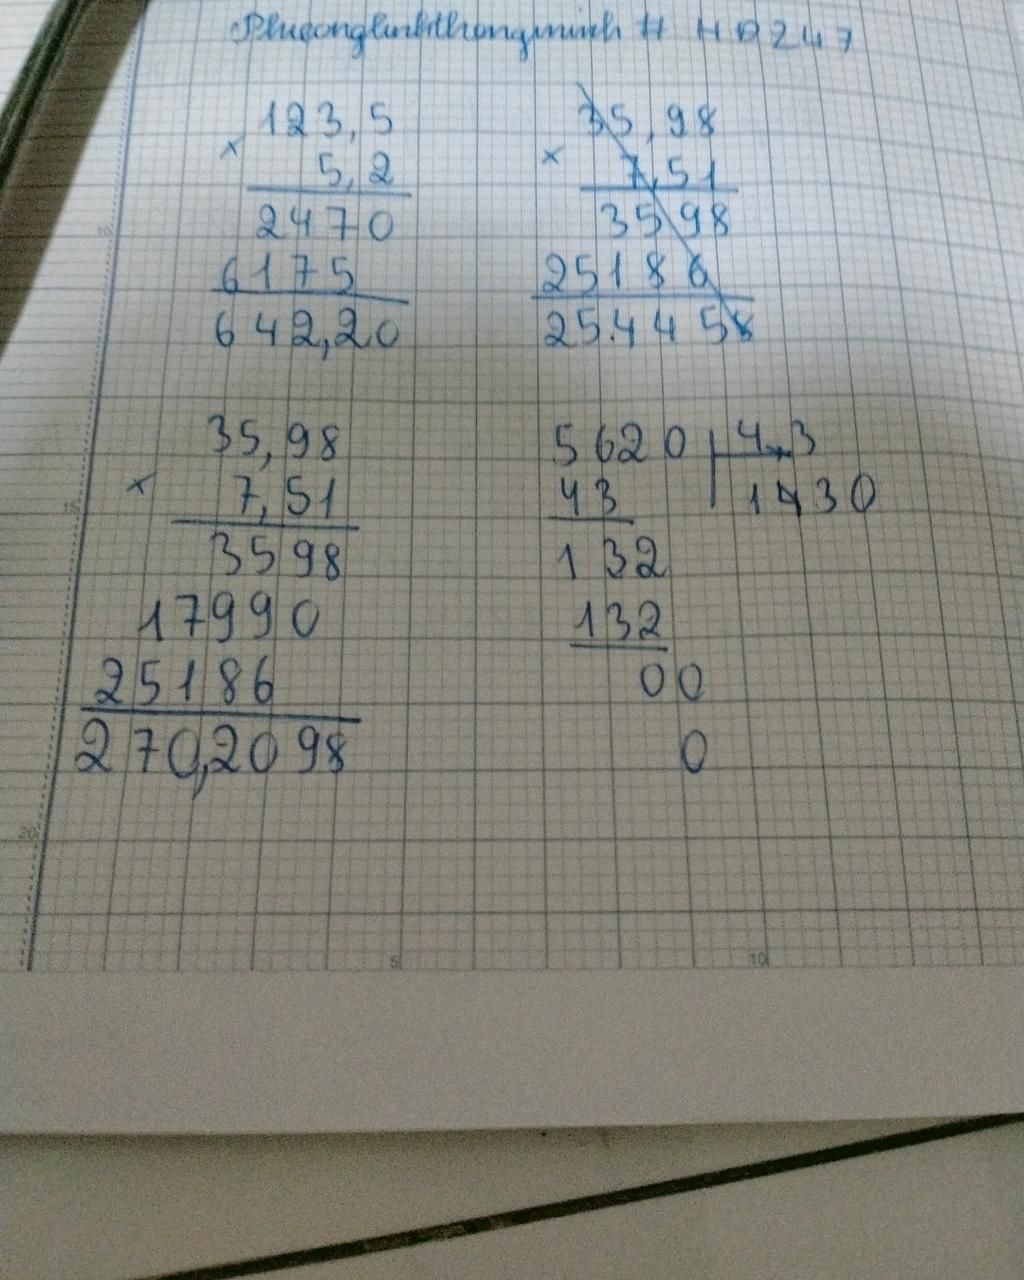 Phuonglinhthongminh # HD247
123,5
× 5,2
2470
6175
642,20
35,98
× 7,51
3598
25186
254458
35,98
× 7,51
3598
17990
25186
270,2098
5620 4,3
43 1430
132
132
00
0
10
15
20
5
10